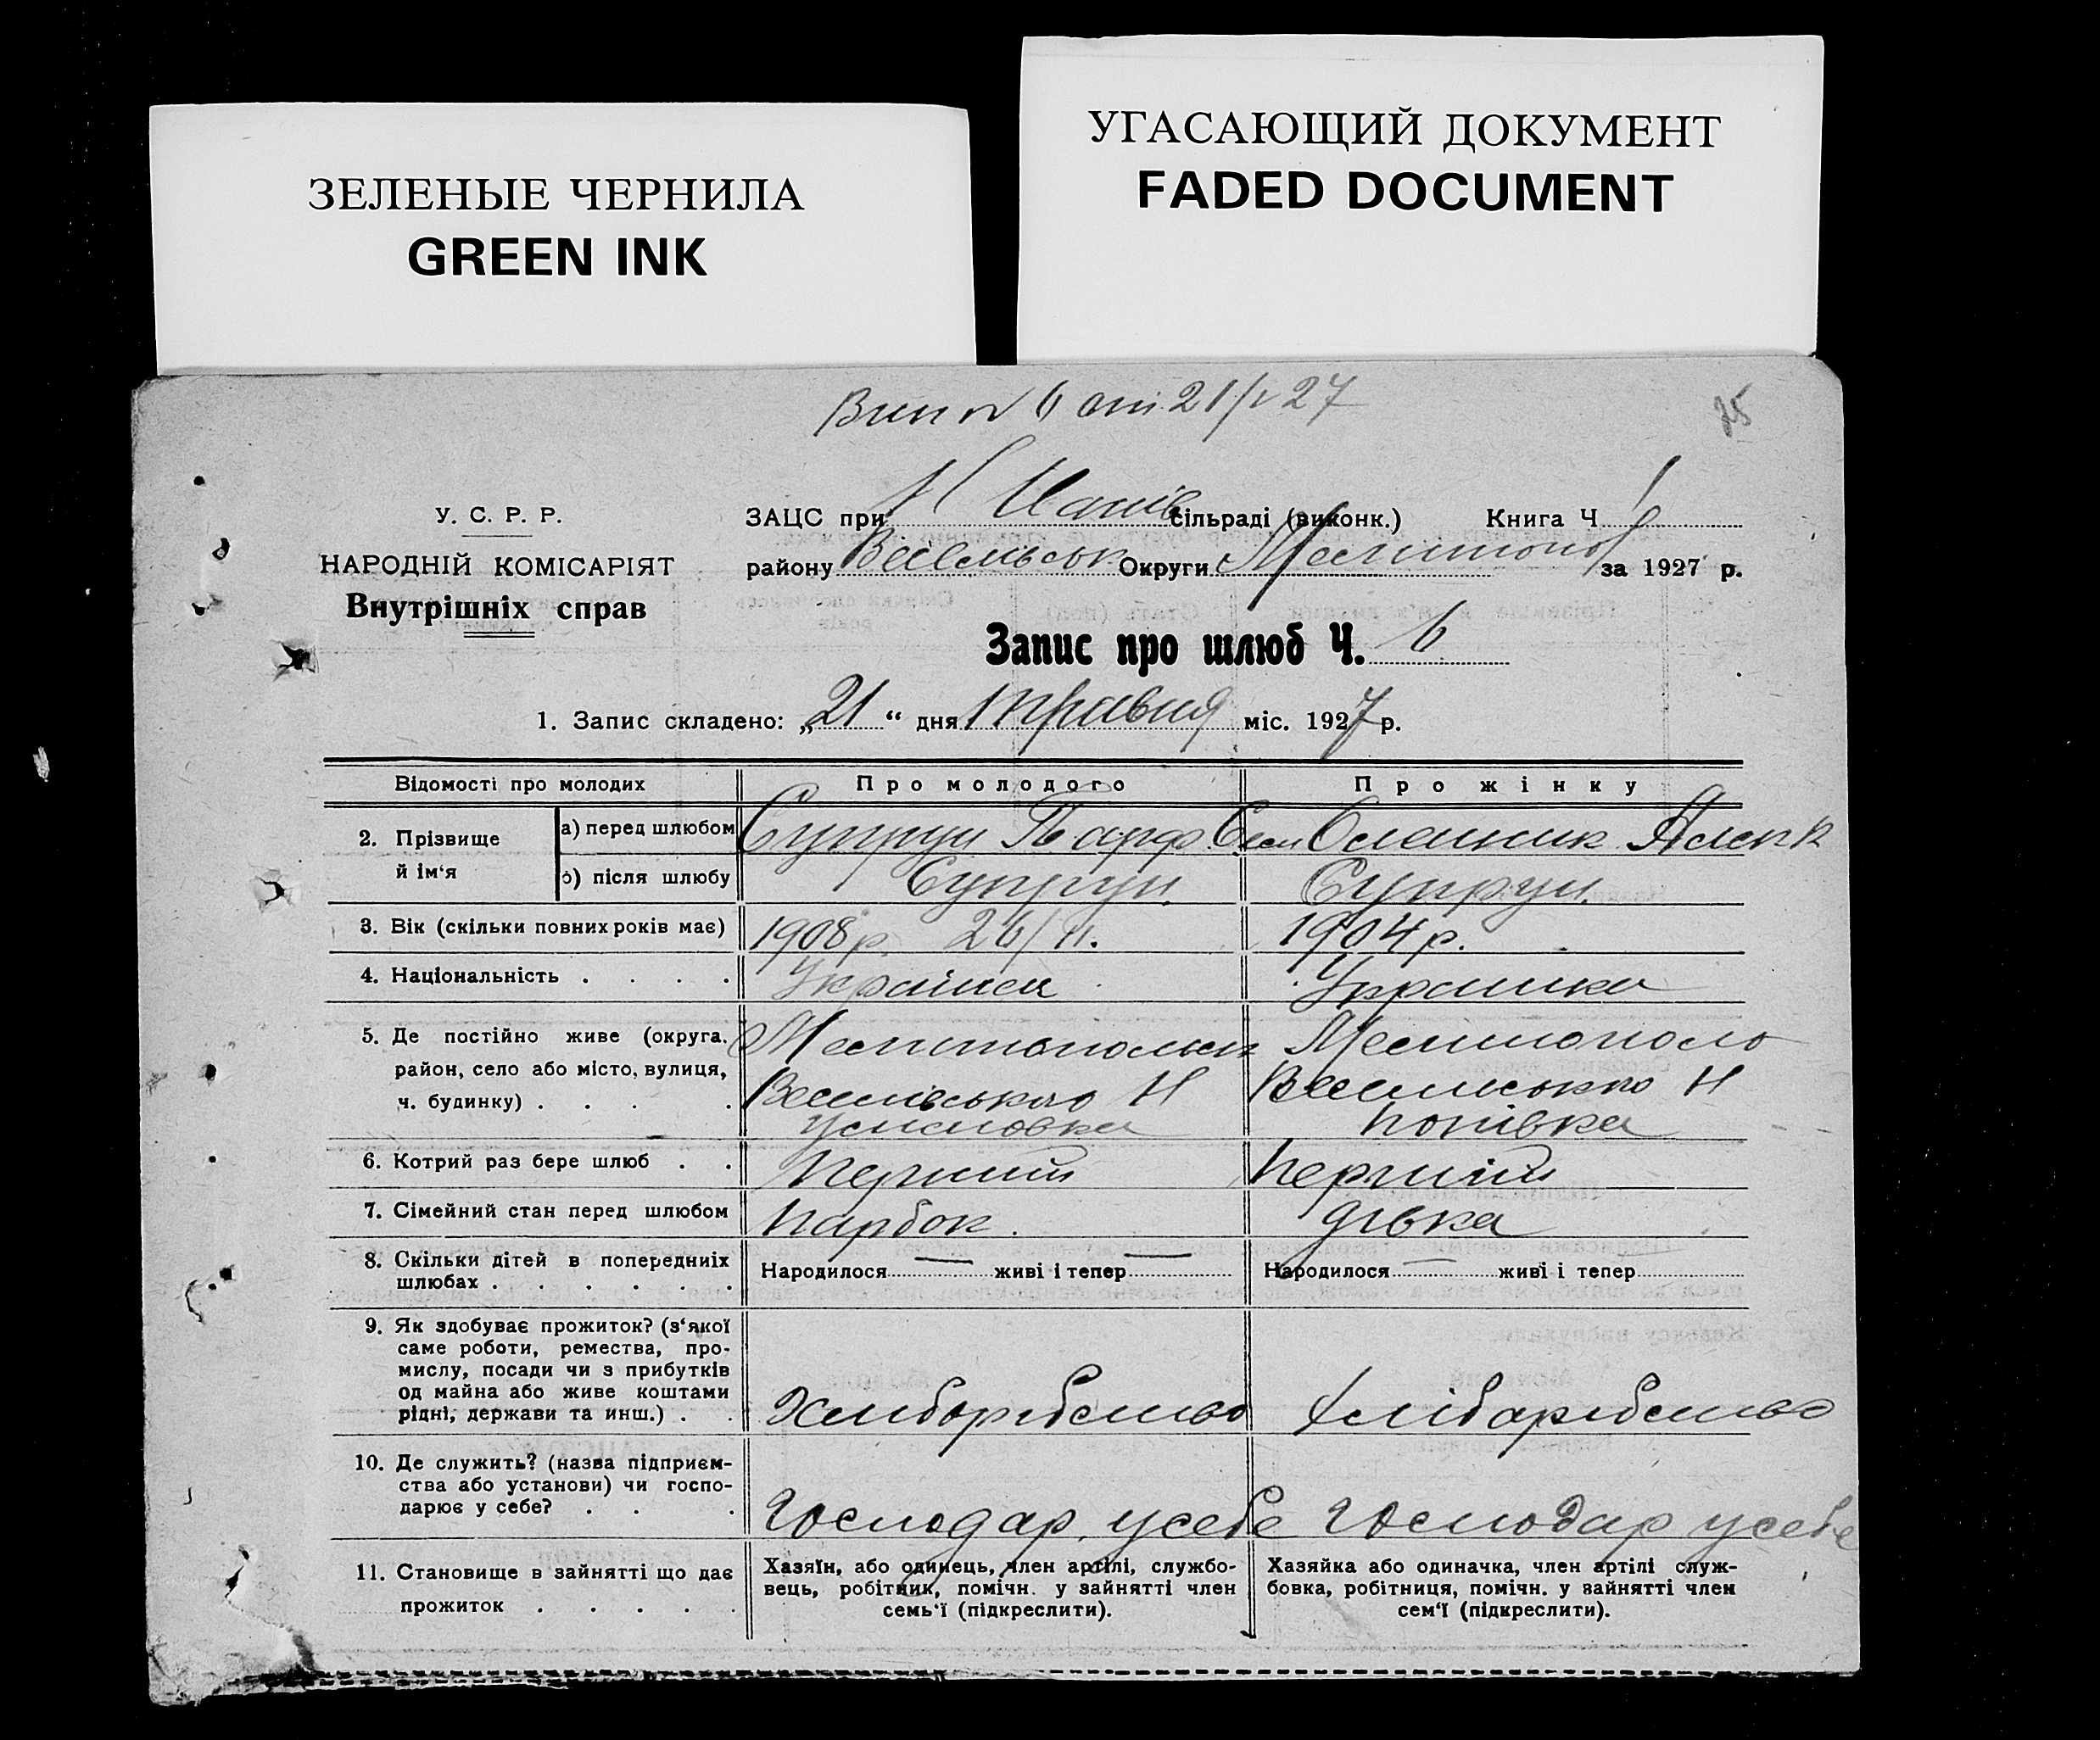 ЗЕЛЕНЫЕ ЧЕРНИЛА
GREEN INK
УГАСАЮЩИЙ ДОКУМЕНТ
FADED DOCUMENT
6 от 21/V 27
У. С. Р. Р.
НАРОДНІЙ КОМІСАРІЯТ
Внутрішніх справ
ЗАЦС при Н сільраді (виконк.) Книга Ч. 1
району Весельськ Округи Мелітопол за 1927 р.
Запис про шлюб Ч. 6
1. Запис складено: „21“ дня травня міс. 1927 р.
Відомості про молодих Про молодого Про жінку
2. Прізвище й ім‘я
а) перед шлюбом Супрун Парф Сем Олейник Алекк
б) після шлюбу Супрун. Супрун.
3. Вік (скільки повних років має) 1908 р. 26/II. 1904 р.
4. Національність . . . . Українец Українка
5. Де постійно живе (округа, район, село або місто, вулиця, ч. будинку) . . . .
Мелитопольск
Веселівського Н
Мелитополь
Весельського Н
Попівка
6. Котрий раз бере шлюб . . Перший Перший
7. Сімейний стан перед шлюбом Парбок. дівка
8. Скільки дітей в попередніх шлюбах . . . . . . Народилося — живі і тепер — Народилося — живі і тепер
9. Як здобуває прожиток? (з‘якої
саме роботи, ремества, про-
мислу, посади чи з прибутків
од майна або живе коштами
рідні, держави та инш.) . .
Хлиборобство Хліборобство
10. Де служить? (назва підприєм-
ства або установи) чи госпо-
дарює у себе? . . .
Господар усебе Господар усебе
11. Становище в зайнятті що дає
прожиток . . . . .
Хазяїн, або одинець, член артілі, службо-
вець, робітник, помічн. у зайнятті член
семь‘ї (підкреслити).
Хазяйка або одиначка, член артілі служ-
бовка, робітниця, помічн. у зайнятті член
сем‘ї (підкреслити).